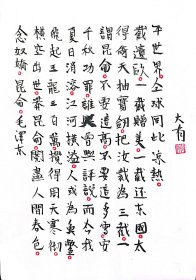 念奴嬌 昆侖 毛澤東
橫空出世莽昆侖閱盡人間春色
飛起玉龍三百萬攪得周天寒徹
夏日消溶江河橫溢人或為魚鱉
千秋功罪誰人曾與評說而今我
謂昆侖不要這高不要這多雪安
得倚天抽寶劍把汝裁為三截一
截遺歐一截贈美一截還東國太
平世界全球同此涼熱
大有